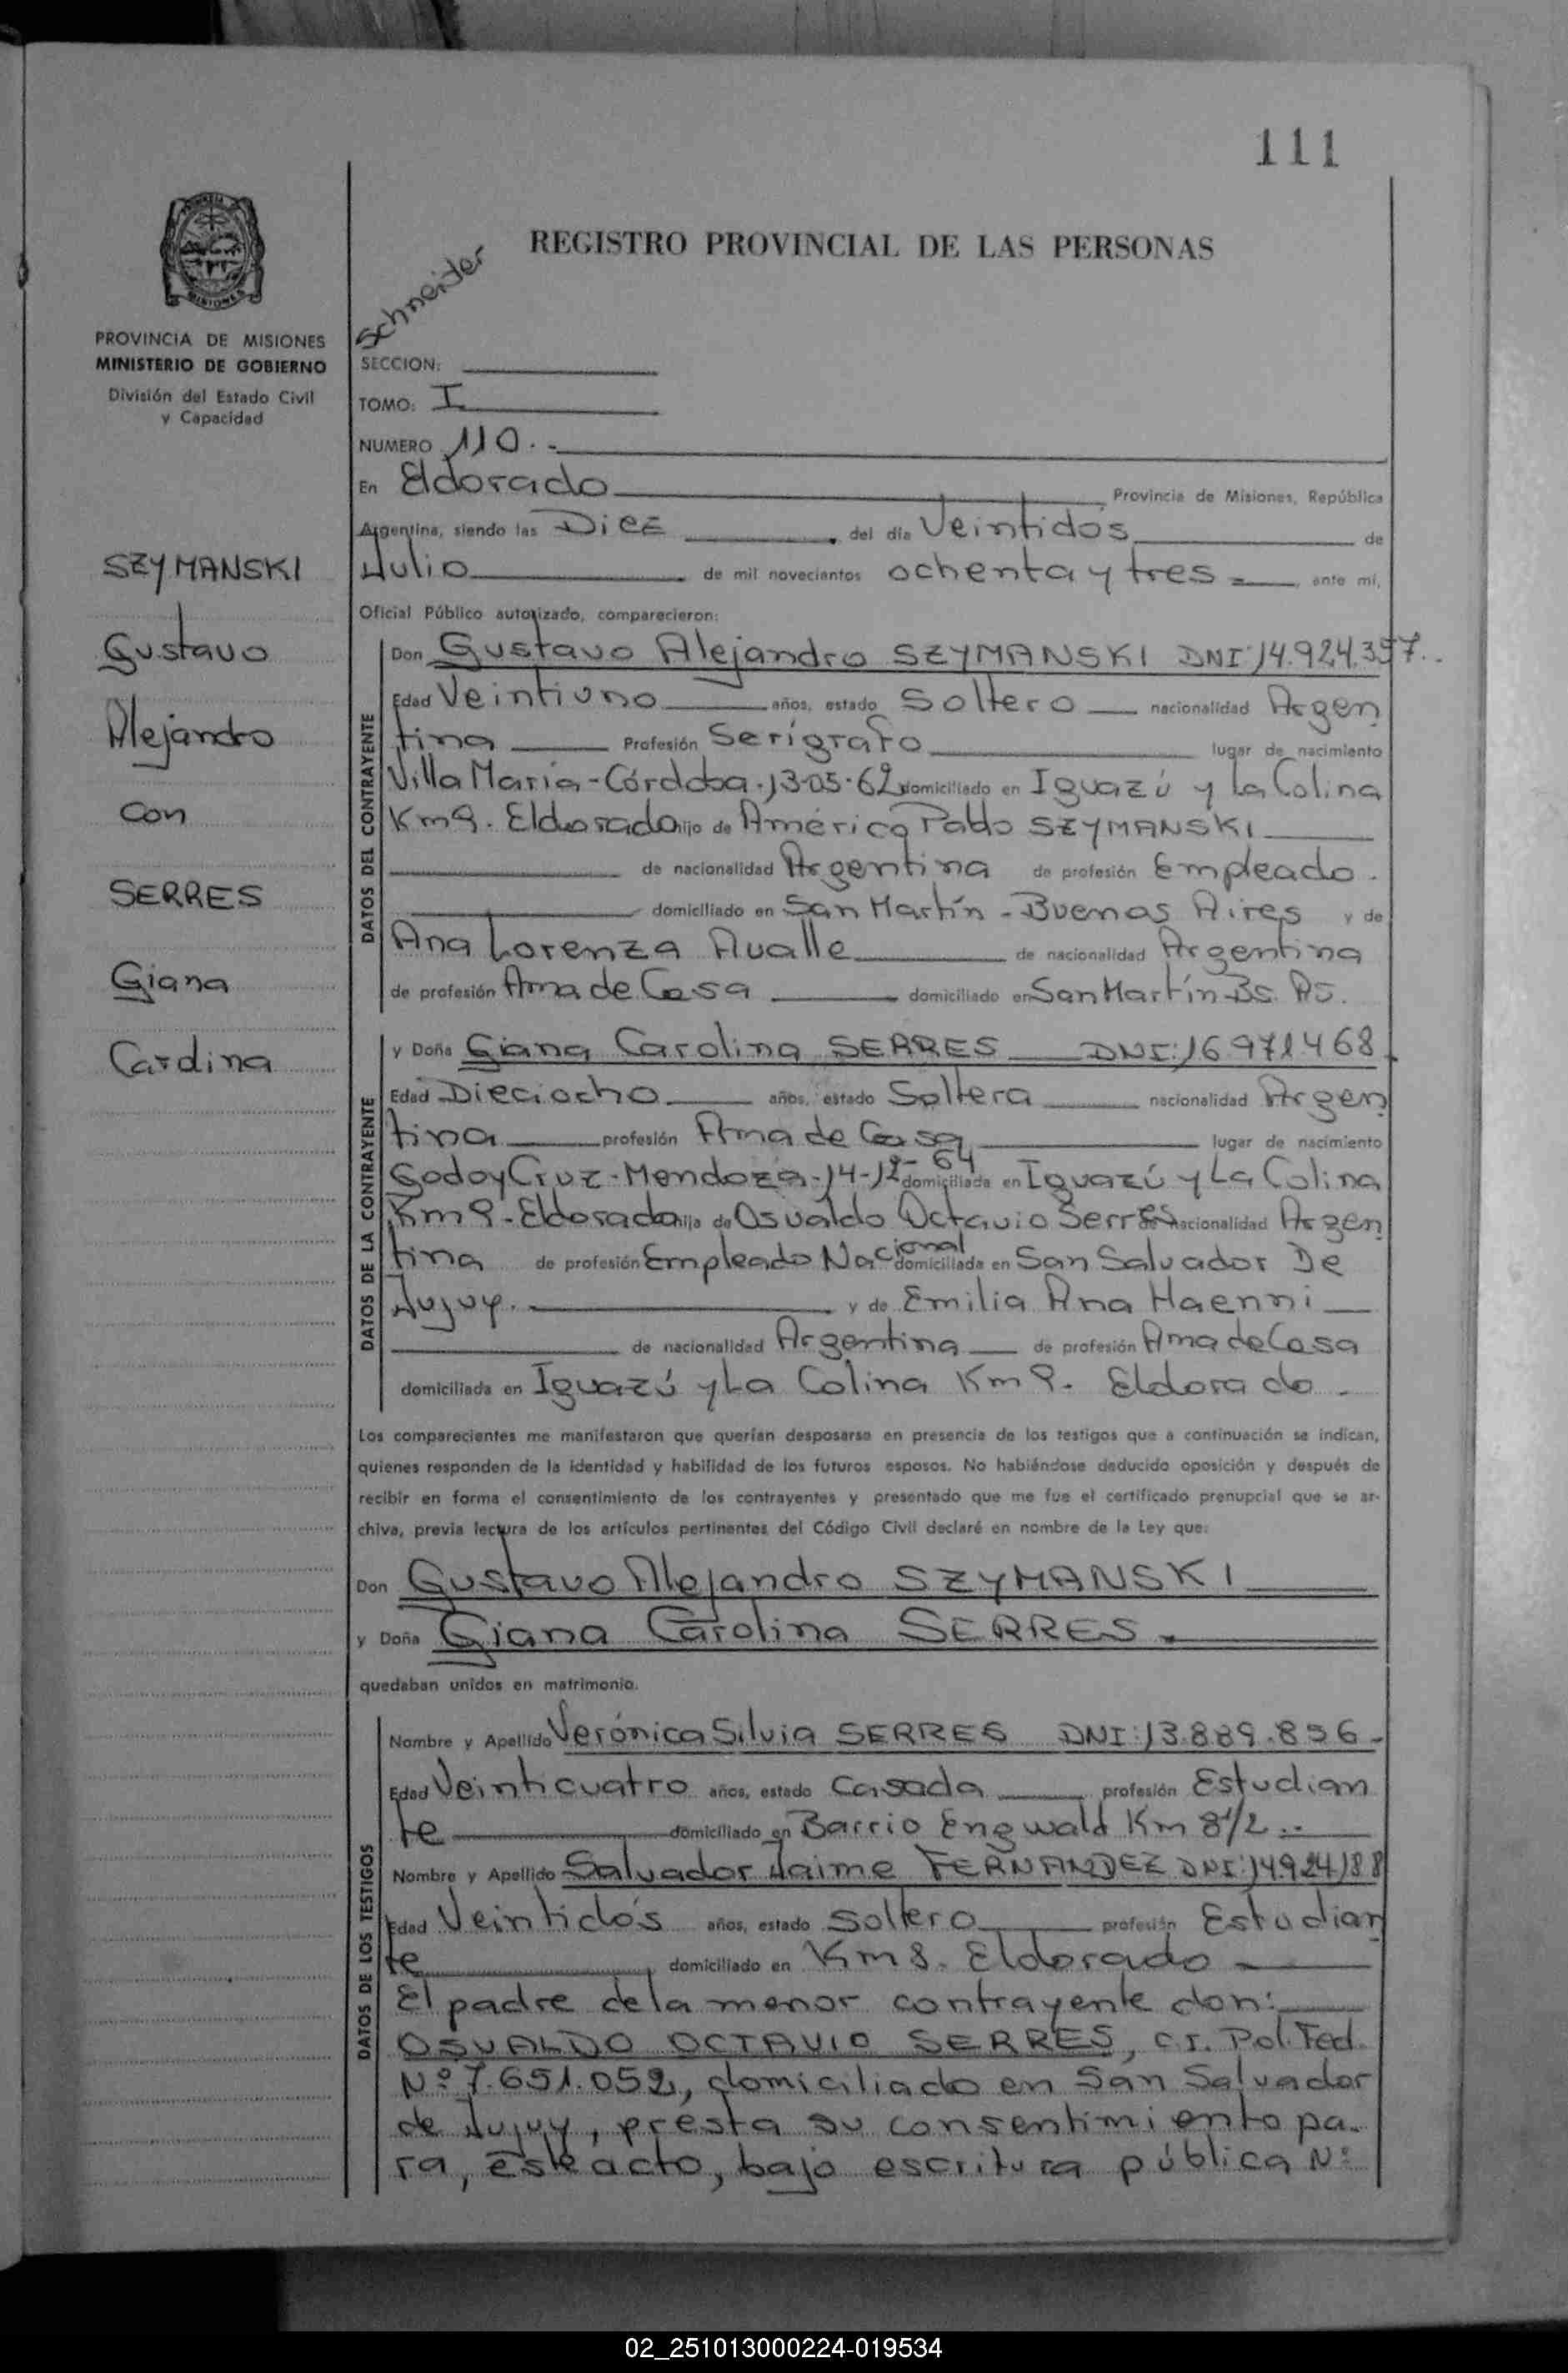 111
REGISTRO PROVINCIAL DE LAS PERSONAS
Schneider
PROVINCIA DE MISIONES
MINISTERIO DE GOBIERNO
División del Estado Civil
y Capacidad
SECCION:
TOMO: I
NUMERO 110.-
En Eldorado Provincia de Misiones, República
Argentina, siendo las Diez del día Veintidós de
Julio de mil novecientos ochenta y tres ante mí,
Oficial Público autorizado, comparecieron:
SZYMANSKI
Gustavo
Alejandro
con
SERRES
Giana
Carolina
DATOS DEL CONTRAYENTE
Don Gustavo Alejandro SZYMANSKI DNI: 14.924.357.
Edad Veintiuno años, estado Soltero nacionalidad Argen
tina Profesión Serígrafo lugar de nacimiento
Villa María - Córdoba - 13-05-62 domiciliado en Iguazú y La Colina
Km 9. Eldorado hijo de Américo Pablo SZYMANSKI
de nacionalidad Argentina de profesión Empleado.
domiciliado en San Martín - Buenos Aires y de
Ana Lorenza Aualle de nacionalidad Argentina
de profesión Ama de Casa domiciliado en San Martín - Bs. As.
DATOS DE LA CONTRAYENTE
y Doña Giana Carolina SERRES DNI: 16.971.468.
Edad Dieciocho años, estado Soltera nacionalidad Argen
tina profesión Ama de Casa lugar de nacimiento
Godoy Cruz - Mendoza - 14-12-64 domiciliada en Iguazú y La Colina
Km 9 - Eldorado hija de Osvaldo Octavio Serres nacionalidad Argen
tina de profesión Empleado Nacional domiciliada en San Salvador De
Jujuy. y de Emilia Ana Haenni
de nacionalidad Argentina de profesión Ama de Casa
domiciliada en Iguazú y La Colina Km 9. Eldorado.
Los comparecientes me manifestaron que querían desposarse en presencia de los testigos que a continuación se indican,
quienes responden de la identidad y habilidad de los futuros esposos. No habiéndose deducido oposición y después de
recibir en forma el consentimiento de los contrayentes y presentado que me fue el certificado prenupcial que se ar-
chiva, previa lectura de los artículos pertinentes del Código Civil declaré en nombre de la Ley que:
Don Gustavo Alejandro SZYMANSKI
y Doña Giana Carolina SERRES.
quedaban unidos en matrimonio.
DATOS DE LOS TESTIGOS
Nombre y Apellido Verónica Silvia SERRES DNI: 13.889.856.-
Edad Veinticuatro años, estado Casada profesión Estudian
te domiciliado en Barrio Engwald Km 8 1/2.-
Nombre y Apellido Salvador Jaime FERNANDEZ DNI: 14.924.188
Edad Veintidós años, estado Soltero profesión Estudian
te domiciliado en Km 8. Eldorado
El padre de la menor contrayente don:
OSVALDO OCTAVIO SERRES, C.I. Pol. Fed.
Nº 7.651.052, domiciliado en San Salvador
de Jujuy, presta su consentimiento pa-
ra, este acto, bajo escritura pública Nº
02_251013000224-019534